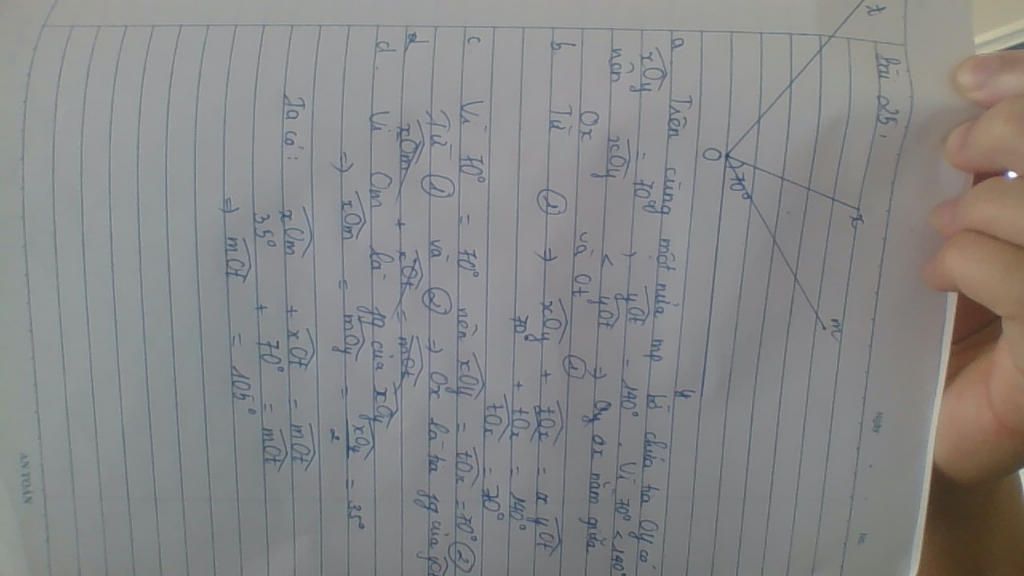 Bài 25:
t
x
m
O
70°
y
a Trên cùng một nửa mp bờ chứa tia Oy có
xOy = 70° ) yOt = 140°. Vì 70° < 140°
nên xOy < yOt => tia Ox nằm giữa
Oy và Ot (1)
b Từ (1) => xOy + tOx = yOt
70° + tOx = 140°
tOx = 70°
c Vì 70° = 70° nên xOy = tOx = 70° (2)
Từ (1) và (2) => Ox là tia pg của yOt
xOm + xOt = mOt
d. Vì Om là pg của xOy
=> xOm = mOy = xOy / 2 = 35°
Ta có: xOm + xOt = mOt
35° + 70° = mOt
=> mOt = 105°
AN TOÀN